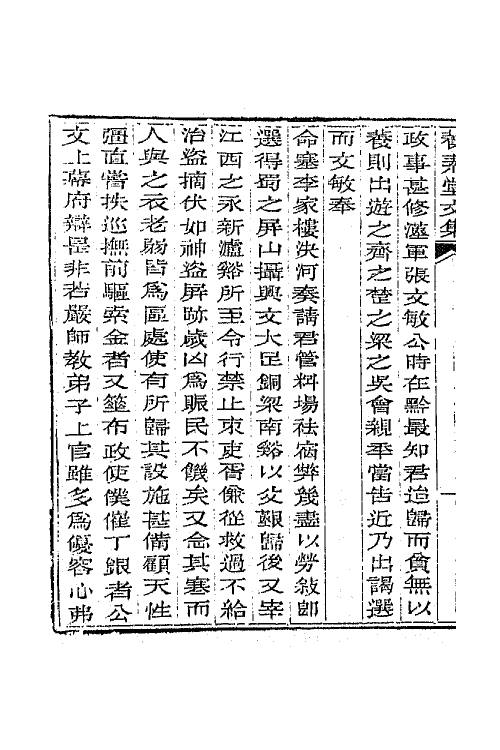 養素堂文集
政事甚修遊軍張文敏公時在黔最知君迨歸而貧無以
養則出遊之齊之楚之梁之吳會親年當告近乃出謁選
而文敏奉
命塞李家樓決河奏請君管料場祛宿弊幾盡以勞敘即
選得蜀之屏山攝興文大足銅梁南谿以父艱歸後又宰
江西之永新瀘谿所至令行禁止束吏胥傔從救過不給
治盜摘伏如神盜屏跡歲凶為賑民不饑矣又念其寒而
人與之衣老弱皆為區處使有所歸其設施甚備顧天性
彊直嘗抶巡撫前驅索金者又箠布政使僕催丁銀者公
文上幕府辯是非若嚴師教弟子上官雖多為優容心弗